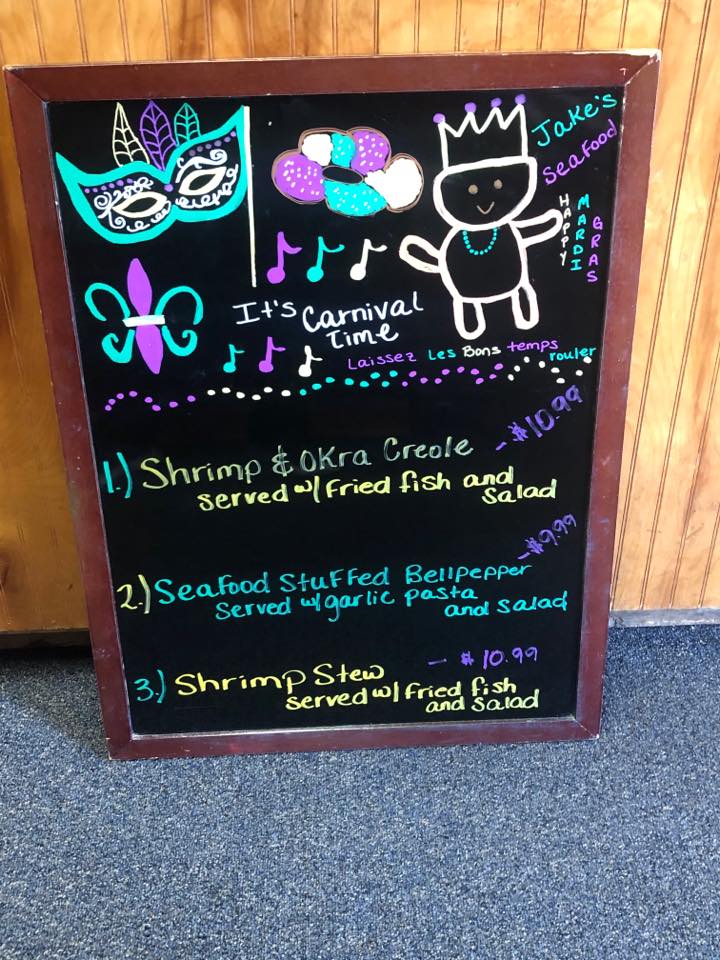 Jake's
Seafood
HAPPY
MARDI
GRAS
It's Carnival
Time
Laissez Les Bons temps
rouler
1.) Shrimp & Okra Creole - $10.99
served w/ Fried fish and
Salad
2.) Seafood Stuffed Bellpepper - $9.99
Served w/ garlic pasta
and salad
3.) Shrimp Stew - $10.99
served w/ Fried fish
and salad